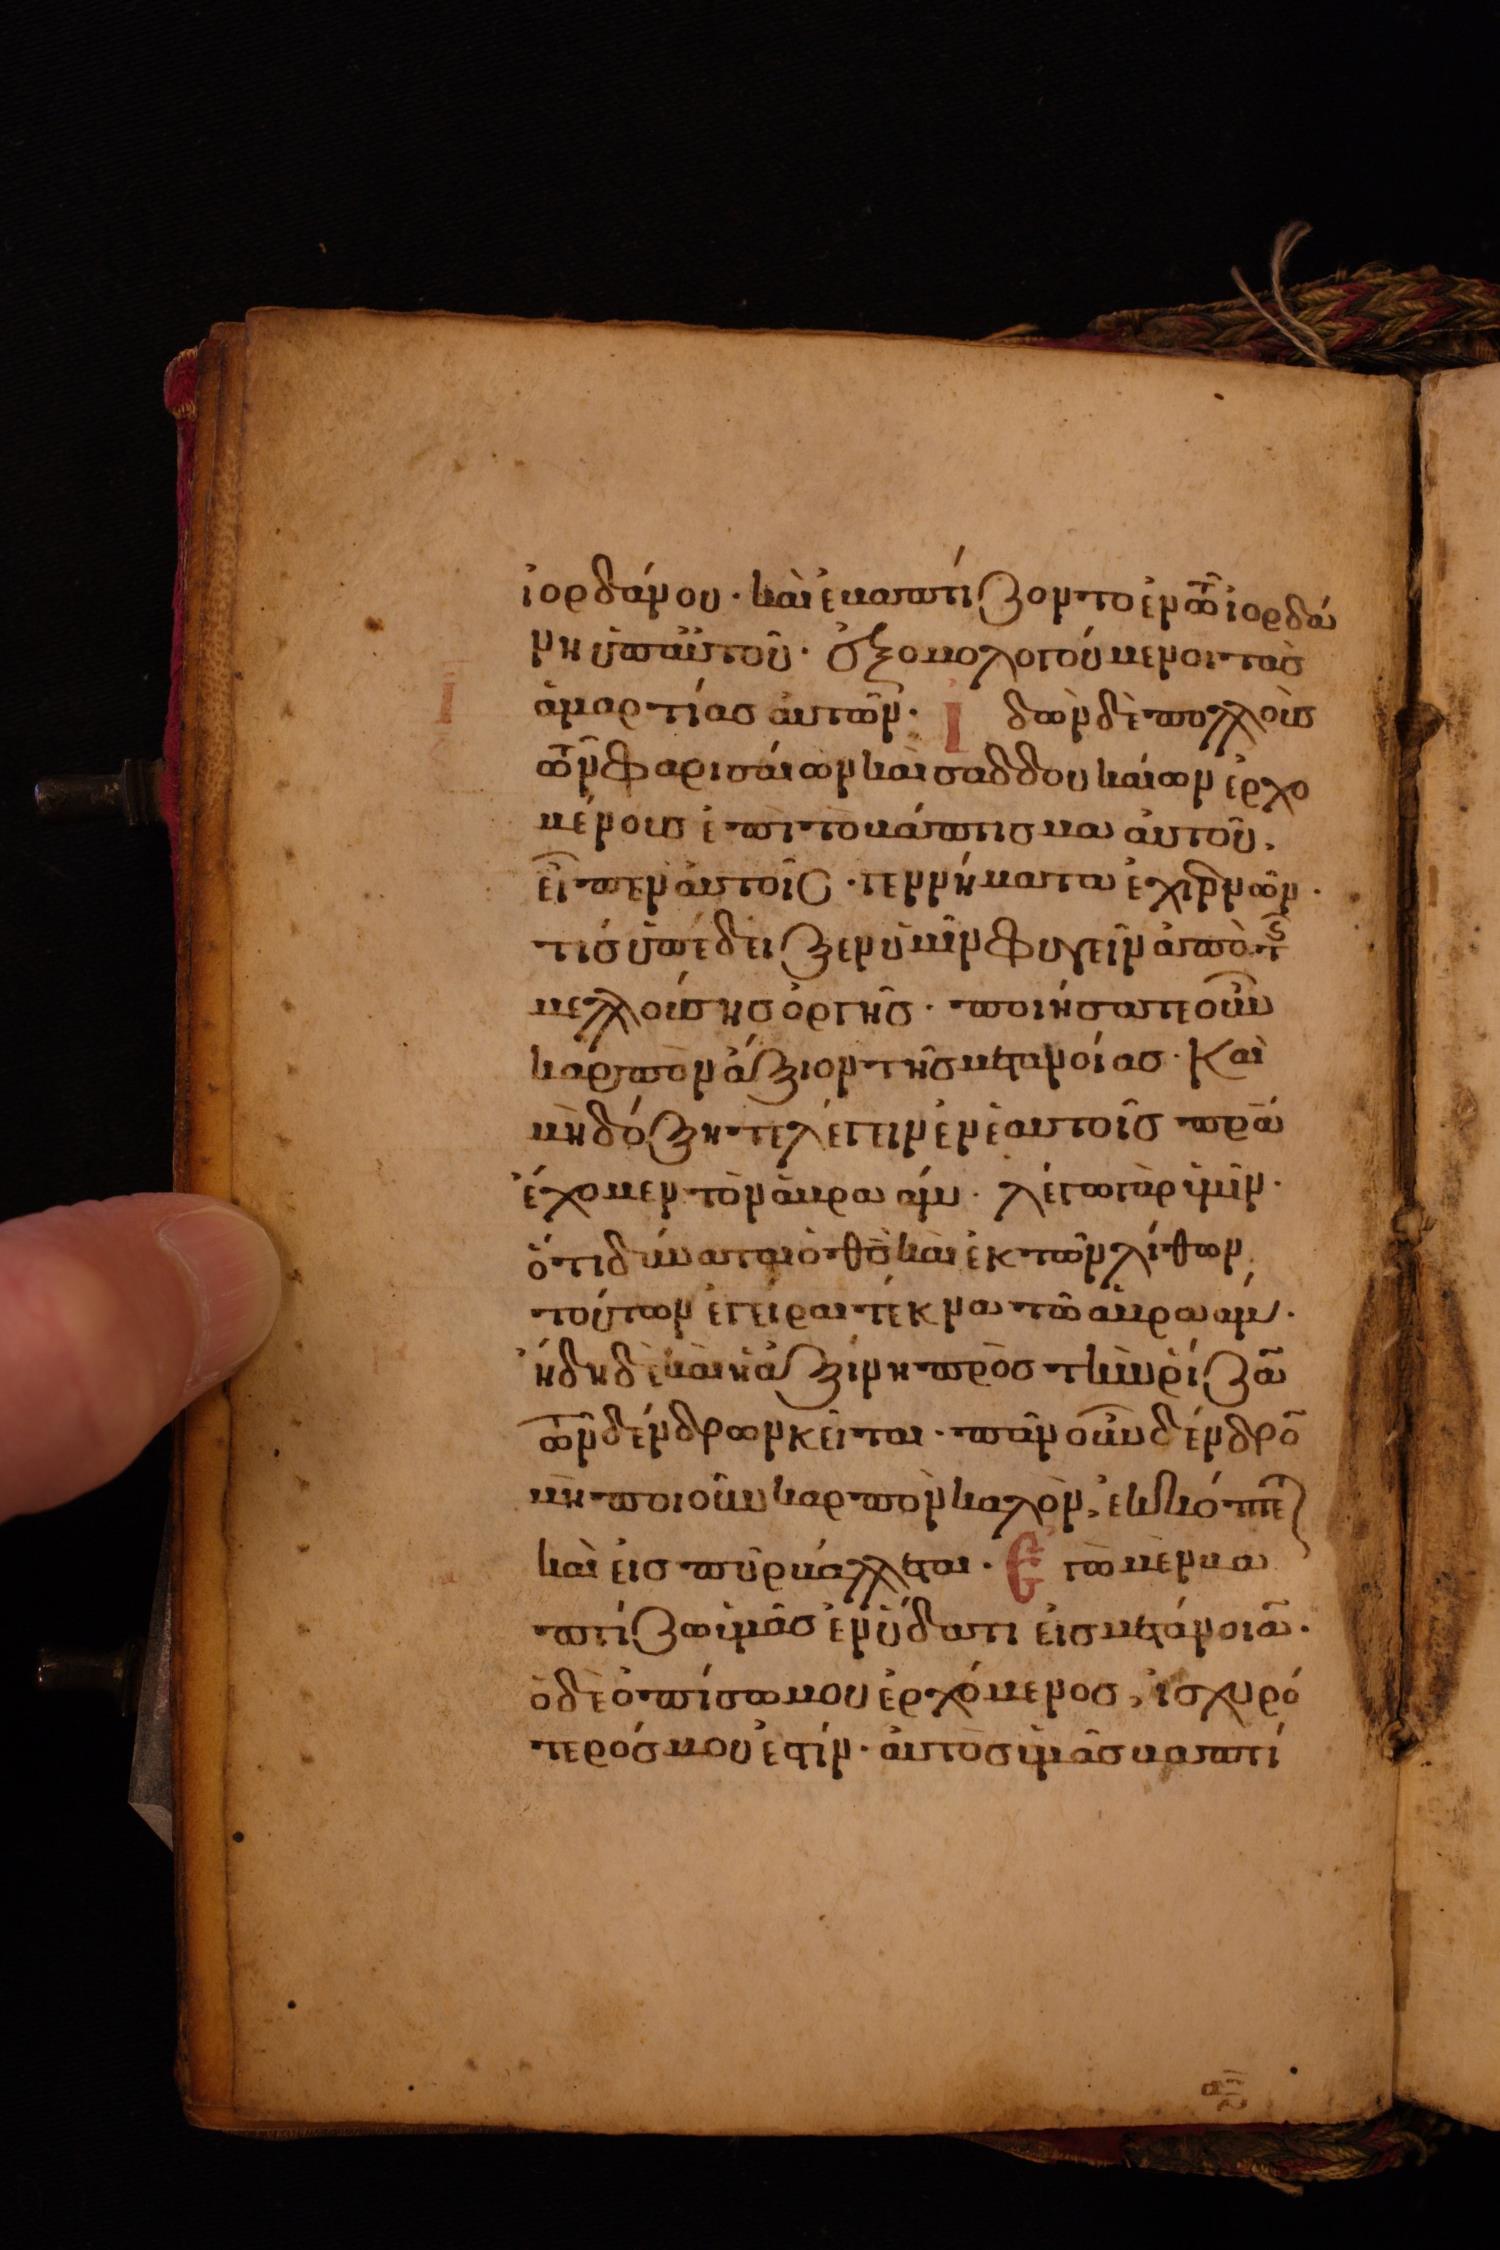 ἰορδάνου · καὶ ἐβαπτίζοντο ἐν τῶ ἰορδά
νη ὑπ' αὐτοῦ · ἐξομολογούμενοι τὰς
ἁμαρτίας αὐτῶν · Ἰδὼν δὲ πολλοὺς
τῶν φαρισαίων καὶ σαδδουκαίων ἐρχο
μένους ἐπὶ τὸ βάπτισμα αὐτοῦ,
εἶπεν αὐτοῖς · γεννήματα ἐχιδνῶν ·
τίς ὑπέδειξεν ὑμῖν φυγεῖν ἀπὸ τῆς
μελλούσης ὀργῆς · ποιήσατε οὖν
καρπὸν ἄξιον τῆς μετανοίας · Καὶ
μὴ δόξητε λέγειν ἐν ἑαυτοῖς πρα
ἔχομεν τὸν ἀβραάμ · λέγω γὰρ ὑμῖν ·
ὅτι δύναται ὁ θς καὶ ἐκ τῶν λίθων
τούτων ἐγεῖραι τέκνα τῶ ἀβραάμ ·
ἤδη δὲ καὶ ἡ ἀξίνη πρὸς τὴν ῥίζαν
τῶν δένδρων κεῖται · πᾶν οὖν δένδρον
μὴ ποιοῦν καρπὸν καλὸν, ἐκκόπτεται
καὶ εἰς πῦρ βάλλεται · Ἐγὼ μὲν βα
πτίζω ὑμᾶς ἐν ὕδατι εἰς μετάνοιαν ·
ὁ δὲ ὀπίσω μου ἐρχόμενος, ἰσχυρό
τερός μου ἐστίν · αὐτὸς ὑμᾶς βαπτί